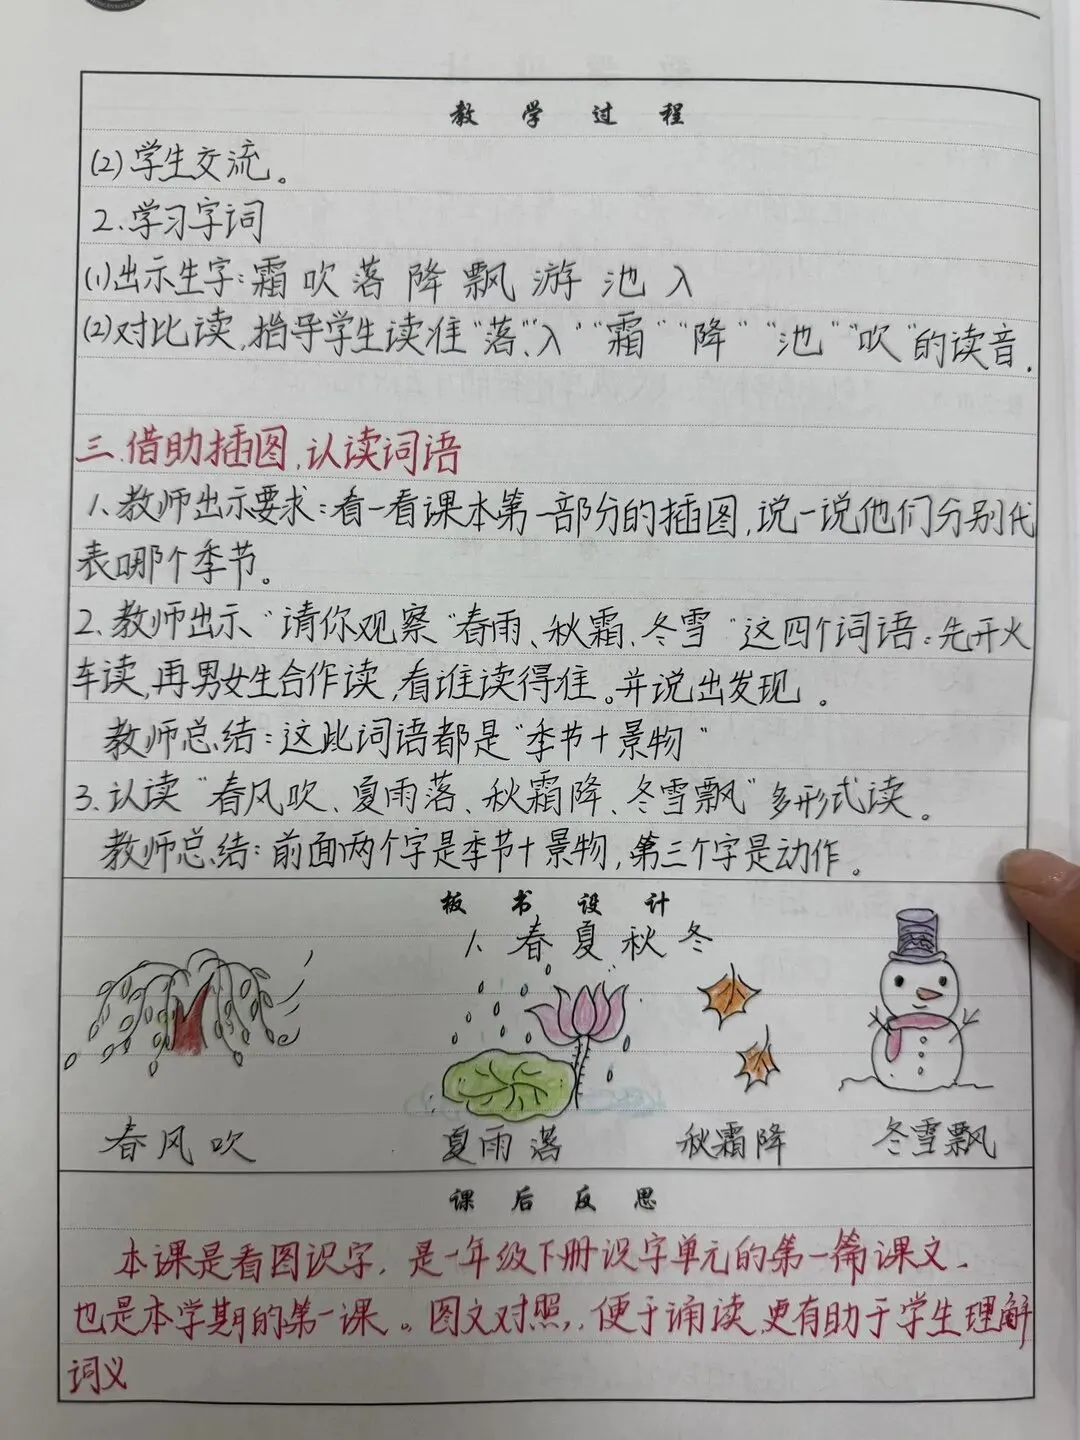 教学过程
(2)学生交流。
2.学习字词
(1)出示生字:霜 吹 落 降 飘 游 池 入
(2)对比读,指导学生读准"落、入""霜""降""池""吹"的读音.
三.借助插图,认读词语
1.教师出示要求:看一看课本第一部分的插图,说一说他们分别代
表哪个季节。
2.教师出示"请你观察"春雨、秋霜、冬雪"这四个词语:先开火
车读,再男女生合作读,看谁读得准。并说出发现。
教师总结:这些词语都是"季节+景物"
3.认读"春风吹、夏雨落、秋霜降、冬雪飘"多形式读。
教师总结:前面两个字是季节+景物,第三个字是动作。
板书设计
1.春夏秋冬
春风吹 夏雨落 秋霜降 冬雪飘
课后反思
本课是看图识字,是一年级下册识字单元的第一篇课文.
也是本学期的第一课。图文对照,便于诵读,更有助于学生理解
词义